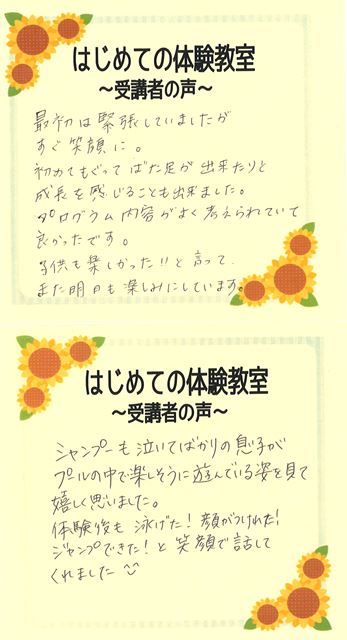 はじめての体験教室
～受講者の声～
最初は緊張していましたが
すぐ笑顔に。
初めてもぐってばた足が出来たりと
成長を感じることも出来ました。
プログラム内容がよく考えられていて
良かったです。
子供も楽しかった!!と言って、
また明日も楽しみにしています。
はじめての体験教室
～受講者の声～
シャンプーも泣いてばかりの息子が
プールの中で楽しそうに遊んでいる姿を見て
嬉しく思いました。
体験後も泳げた!顔がつけれた!
ジャンプできた!と笑顔で話して
くれました